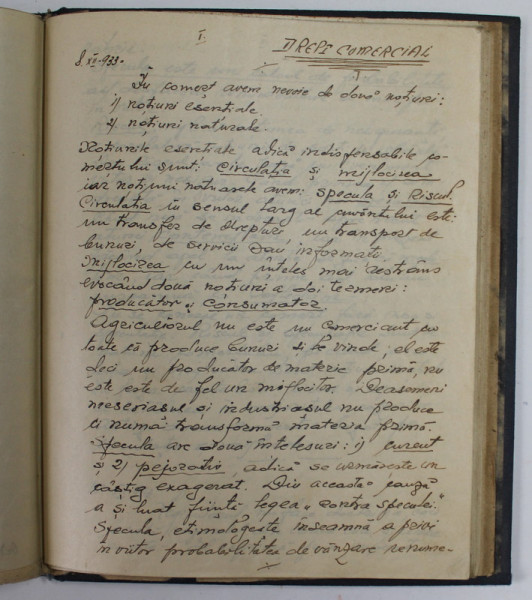 I.
DREPT COMERCIAL
8 XI-933.
I
În comerț avem nevoie de două noțiuni:
1) noțiuni esențiale.
2) noțiuni naturale.
Noțiunile esențiale adică indispensabile co-
merțului sunt: circulația și mijlocirea
iar noțiuni naturale avem: specula și riscul.
Circulația în sensul larg al cuvântului este
un transfer de drepturi un transport de
bunuri, de servicii sau informații.
Mijlocirea cu un înțeles mai restrâns
evocând două noțiuni a doi termeni:
producător și consumator.
Agricultorul nu este un comerciant cu
toate că produce bunuri și le vinde, el este
deci un producător de materie primă, nu
este de fel un mijlocitor. Deasemeni
meseriașul și industriașul nu produce
ci numai transformă materia primă.
Specula are două înțelesuri: 1) curent
și 2) pejorativ, adică se urmărește un
câștig exagerat. Din această cauză
a și luat ființă legea "contra speculei".
Specula, etimologește înseamnă a privi
în viitor probabilitatea de vânzare renume-